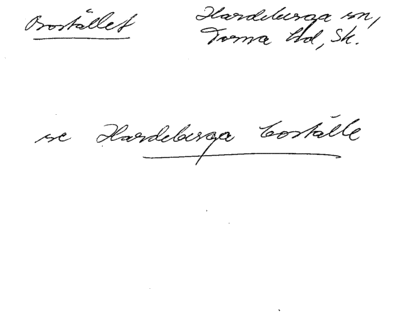 Bostället
Hardeberga sn,
Torna hd, Sk.
se Hardeberga boställe